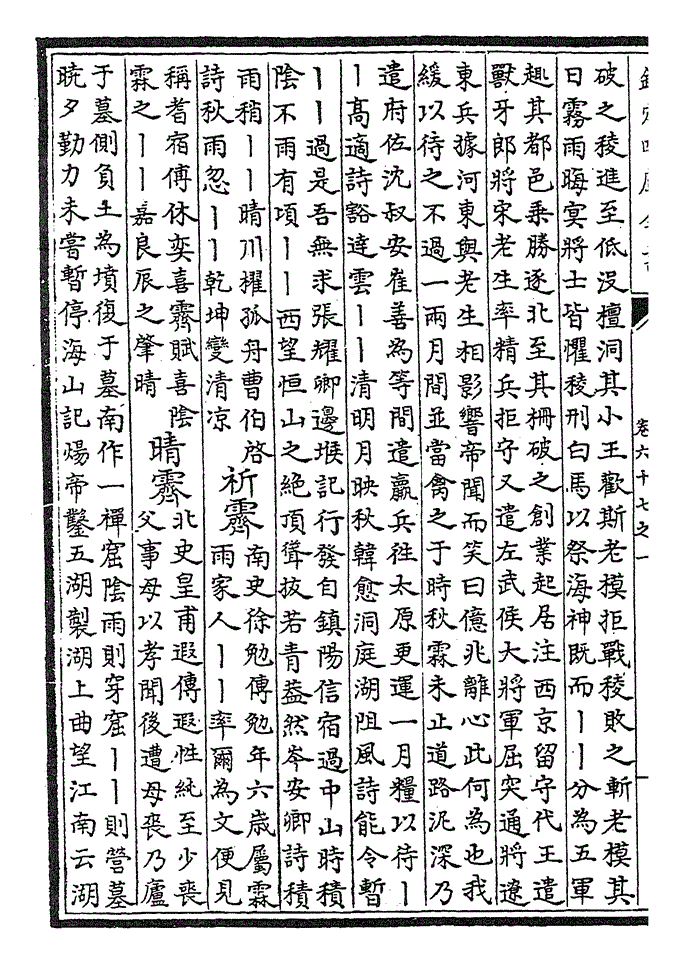 卷六十七之一
破之稜進至低没檀洞其小王歡斯老模拒戰稜敗之斬老模其
日霧雨晦冥將士皆懼稜刑白馬以祭海神既而丨丨分為五軍
趣其都邑乘勝逐北至其柵破之創業起居注西京留守代王遣
獸牙郎將宋老生率精兵拒守又遣左武侯大將軍屈突通將遼
東兵據河東與老生相影響帝聞而笑曰億兆離心此何為也我
緩以待之不過一兩月間並當禽之于時秋霖未止道路泥深乃
遣府佐沈叔安崔善為等間遣羸兵往太原更運一月糧以待丨
丨高適詩豁達雲丨丨清明月映秋韓愈洞庭湖阻風詩能令暫
丨丨過是吾無求張耀卿邊堠記行發自鎮陽信宿過中山時積
陰不雨有頃丨丨西望恒山之絶頂聳拔若青葢然岑安卿詩積
雨稍丨丨晴川擢孤舟曹伯啓
詩秋雨忽丨丨乾坤變清凉
祈霽
南史徐勉傳勉年六歲屬霖
雨家人丨丨率爾為文便見
稱耆宿傅休奕喜霽賦喜陰
霖之丨丨嘉良辰之肇晴
晴霽
北史皇甫遐傳遐性純至少喪
父事母以孝聞後遭母喪乃廬
于墓側負土為墳復于墓南作一禪窟陰雨則穿窟丨丨則營墓
曉夕勤力未嘗暫停海山記煬帝鑿五湖製湖上曲望江南云湖